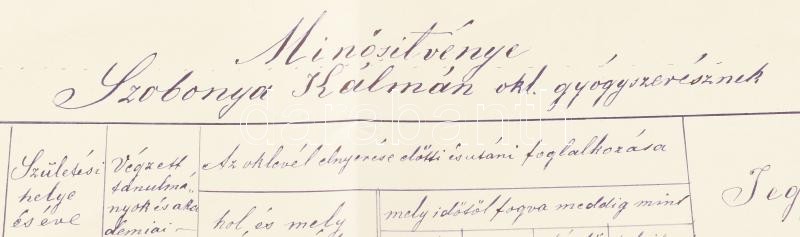 Minősitvénye
Szobonya Kálmán okl. gyógyszerésznek
Születési
helye
és éve
Végzett
tanulmá-
nyok és aka
démiai -
Az oklevél elnyerése előtti és utáni foglalkozása
hol, és mely
mely időtől fogva meddig mint
Jeg
darabanth